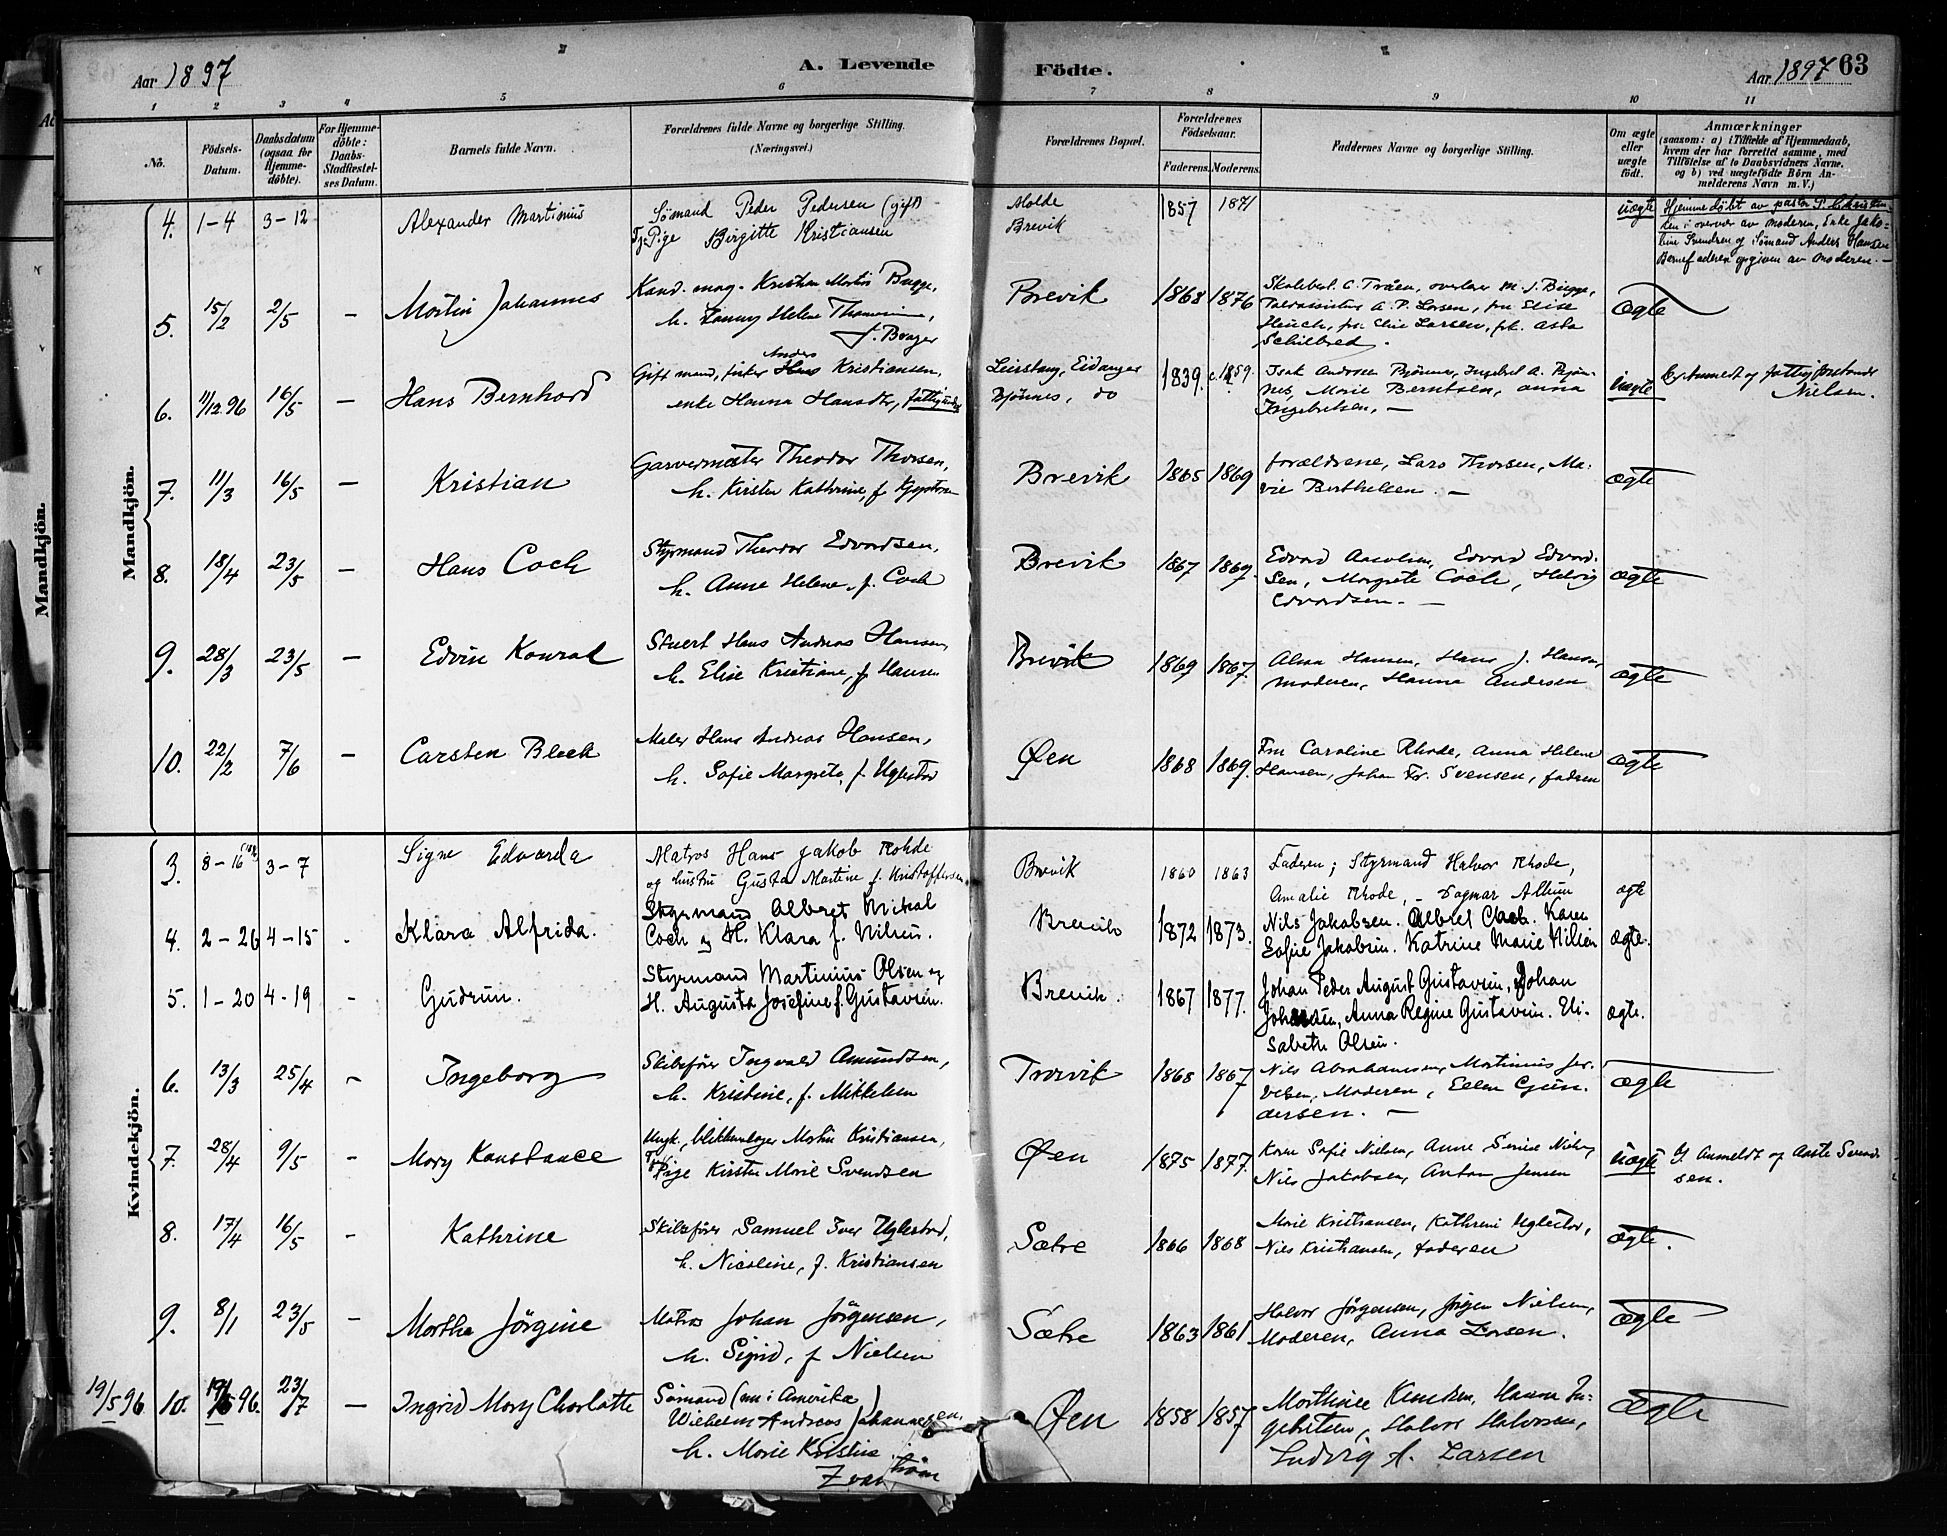 Aar 1897
A. Levende
Födte.
Aar 1897 63
1 2 3 4 5 6 7 8 9 10 11
No.
Födsels-Datum.
Daabsdatum (ogsaa for Hjemme-döbte).
For Hjemme-döbte: Daabs-Stadfæstel-ses Datum.
Barnets fulde Navn.
Forældrenes fulde Navne og borgerlige Stilling. (Næringsvei.)
Forældrenes Bopæl.
Forældrenes Födselsaar.
Faderens. Moderens.
Faddernes Navne og borgerlige Stilling.
Om ægte eller uægte födt.
Anmærkninger
(saasom: a) i Tilfælde af Hjemmedaab, hvem der har forrettet samme, med Tilföielse af to Daabsvidners Navne, og b) ved uægtefödte Börn An-melderens Navn m. V.)
Mandkjön.
Mandkjön.
4. 1-4 3-12 Alexander Martinius
Sømand Peder Pedersen (gift)
Tj. Pige Birgitte Kristiansen
Molde
Brevik
1857 1871
uægte
Hjemmedøbt av pastor P.
i overvær av moderen, Enke Jako-
bine Svendsen og Sømand Anders Hansen
Barnefaderen opgiven av moderen. -
5. 15/2 2/5 - Martin Johannes
Kand. mag. Kristian Martin Bugge,
h. Fanny Helene
Brevik 1868 1876
Skolebest. C. Tråen, overlærer M. J. Bugge,
A. P. Larsen, fru Elise
Heuch, fru Elise Larsen, frk. Asta
Schilbred.
Ægte
6. 11/12 96 16/5 - Hans Bernhard
Gift mand, fisker Anders Kristiansen,
enke Hanna Hansdtr,
Leirstang, Eidanger
Bjönnes, do
1839. c. 1859.
Isak Andersen Bjönnes, Ingebret A. Bjön-
nes, Marie Berntsen, Anna
Ingebretsen. -
uægte
Anmeldt af fattigforstander
Nielsen.
7. 11/3 16/5 - Kristian
Garvermester Theodor Thorsen,
h. Kirsten Kathrine, f.
Brevik 1865 1869
forældrene, Lars Thorsen, Ma-
rie Berthelsen. -
ægte
8. 18/4 23/5 - Hans Coch
Styrmand Theodor Edvardsen,
h. Anne Helene, f. Coch
Brevik 1867 1869.
Edvard Edvard-
sen, Margrete Coch, Helvig
Edvardsen. -
ægte
9. 28/3 23/5 - Edvin Konrad
Stuert Hans Andreas Hansen,
h. Elise Kristiane, f. Hansen
Brevik 1869 1867.
Alma Hansen, Hans J. Hansen,
moderen, Hanna Andersen
ægte
10. 22/2 7/6 - Carsten Blech
Maler Hans Andreas Hansen,
h. Sofie Margrete, f. Uglestad
Øen 1868 1869.
Fru Caroline Rhode, Anna Helene
Hansen, Johan Fr. Svensen, fadren
ægte
Kvindekjön.
3. 8-16 3-7 Signe Edvarda
Matros Hans Jakob Rohde
og hustru Gusta Martine f. Kristoffersen
Brevik 1860 1863
Faderen; Styrmand Halvor Rhode,
Amalie Rhode, - Dagmar Altum
ægte
4. 2-26 4-15 - Klara Alfrida.
Styrmand Albret Nikal
Coch og H. Klara f. Nilsen.
Brevik 1872 1873.
Nils Jakobsen. Albret Coch. Karen
Sofie Jakobsen. Katrine Marie Nilsen
ægte.
5. 1-20 4-19 - Gudrun.
Styrmand Martinius Olsen og
H. Augusta Josefine f. Gustavsen.
Brevik. 1867 1877.
Johan Peder August Gustavsen, Johan
Johansen, Anna Regine Gustavsen. Eli-
sabeth Olsen.
ægte.
6. 13/3 25/4 - Ingeborg
Skibsfører Ingvald Amundsen,
h. Kristine, f. Mikkelsen
Trosvik 1868 1867
Nils Abrahamsen, Martinius
Moderen, Ellen Gun-
dersen. -
ægte
7. 28/4 9/5 - Mary Konstance
Ungk., blikkenslager Martin Kristiansen,
Pige Kirsten Marie Svendsen
Øen 1875 1877.
Karen Sofie Nielsen, Anne Severine Nielsen,
Nils Jakobsen, Anton Jensen
uægte
Anmeldt af Aaste Svend-
sen.
8. 17/4 16/5 - Kathrine
Skibsfører Samuel Iver Uglestad,
h. Nicoline, f. Kristiansen
Sætre 1866 1868
Marie Kristiansen, Kathrine Uglestad,
Nils Kristiansen, faderen
ægte.
9. 8/1 23/5 - Marthe Jörgine
Matros Johan Jörgensen,
h. Sigrid, f. Nielsen
Sætre 1863 1861
Halvor Jörgensen, Jörgen Nielsen,
Moderen, Anna Larsen.
ægte
19/5 96 10. 19/5 96. 23/7 - Ingrid Mary Charlotte
Sømand (nu i Amerika)
Wilhelm Andreas Johannesen,
h. Marie Kristine
Øen 1858 1857
Marthine Knudsen, Hanna In-
gebretsen, Halvor Halvorsen,
Ludvig A. Larsen
Ægte